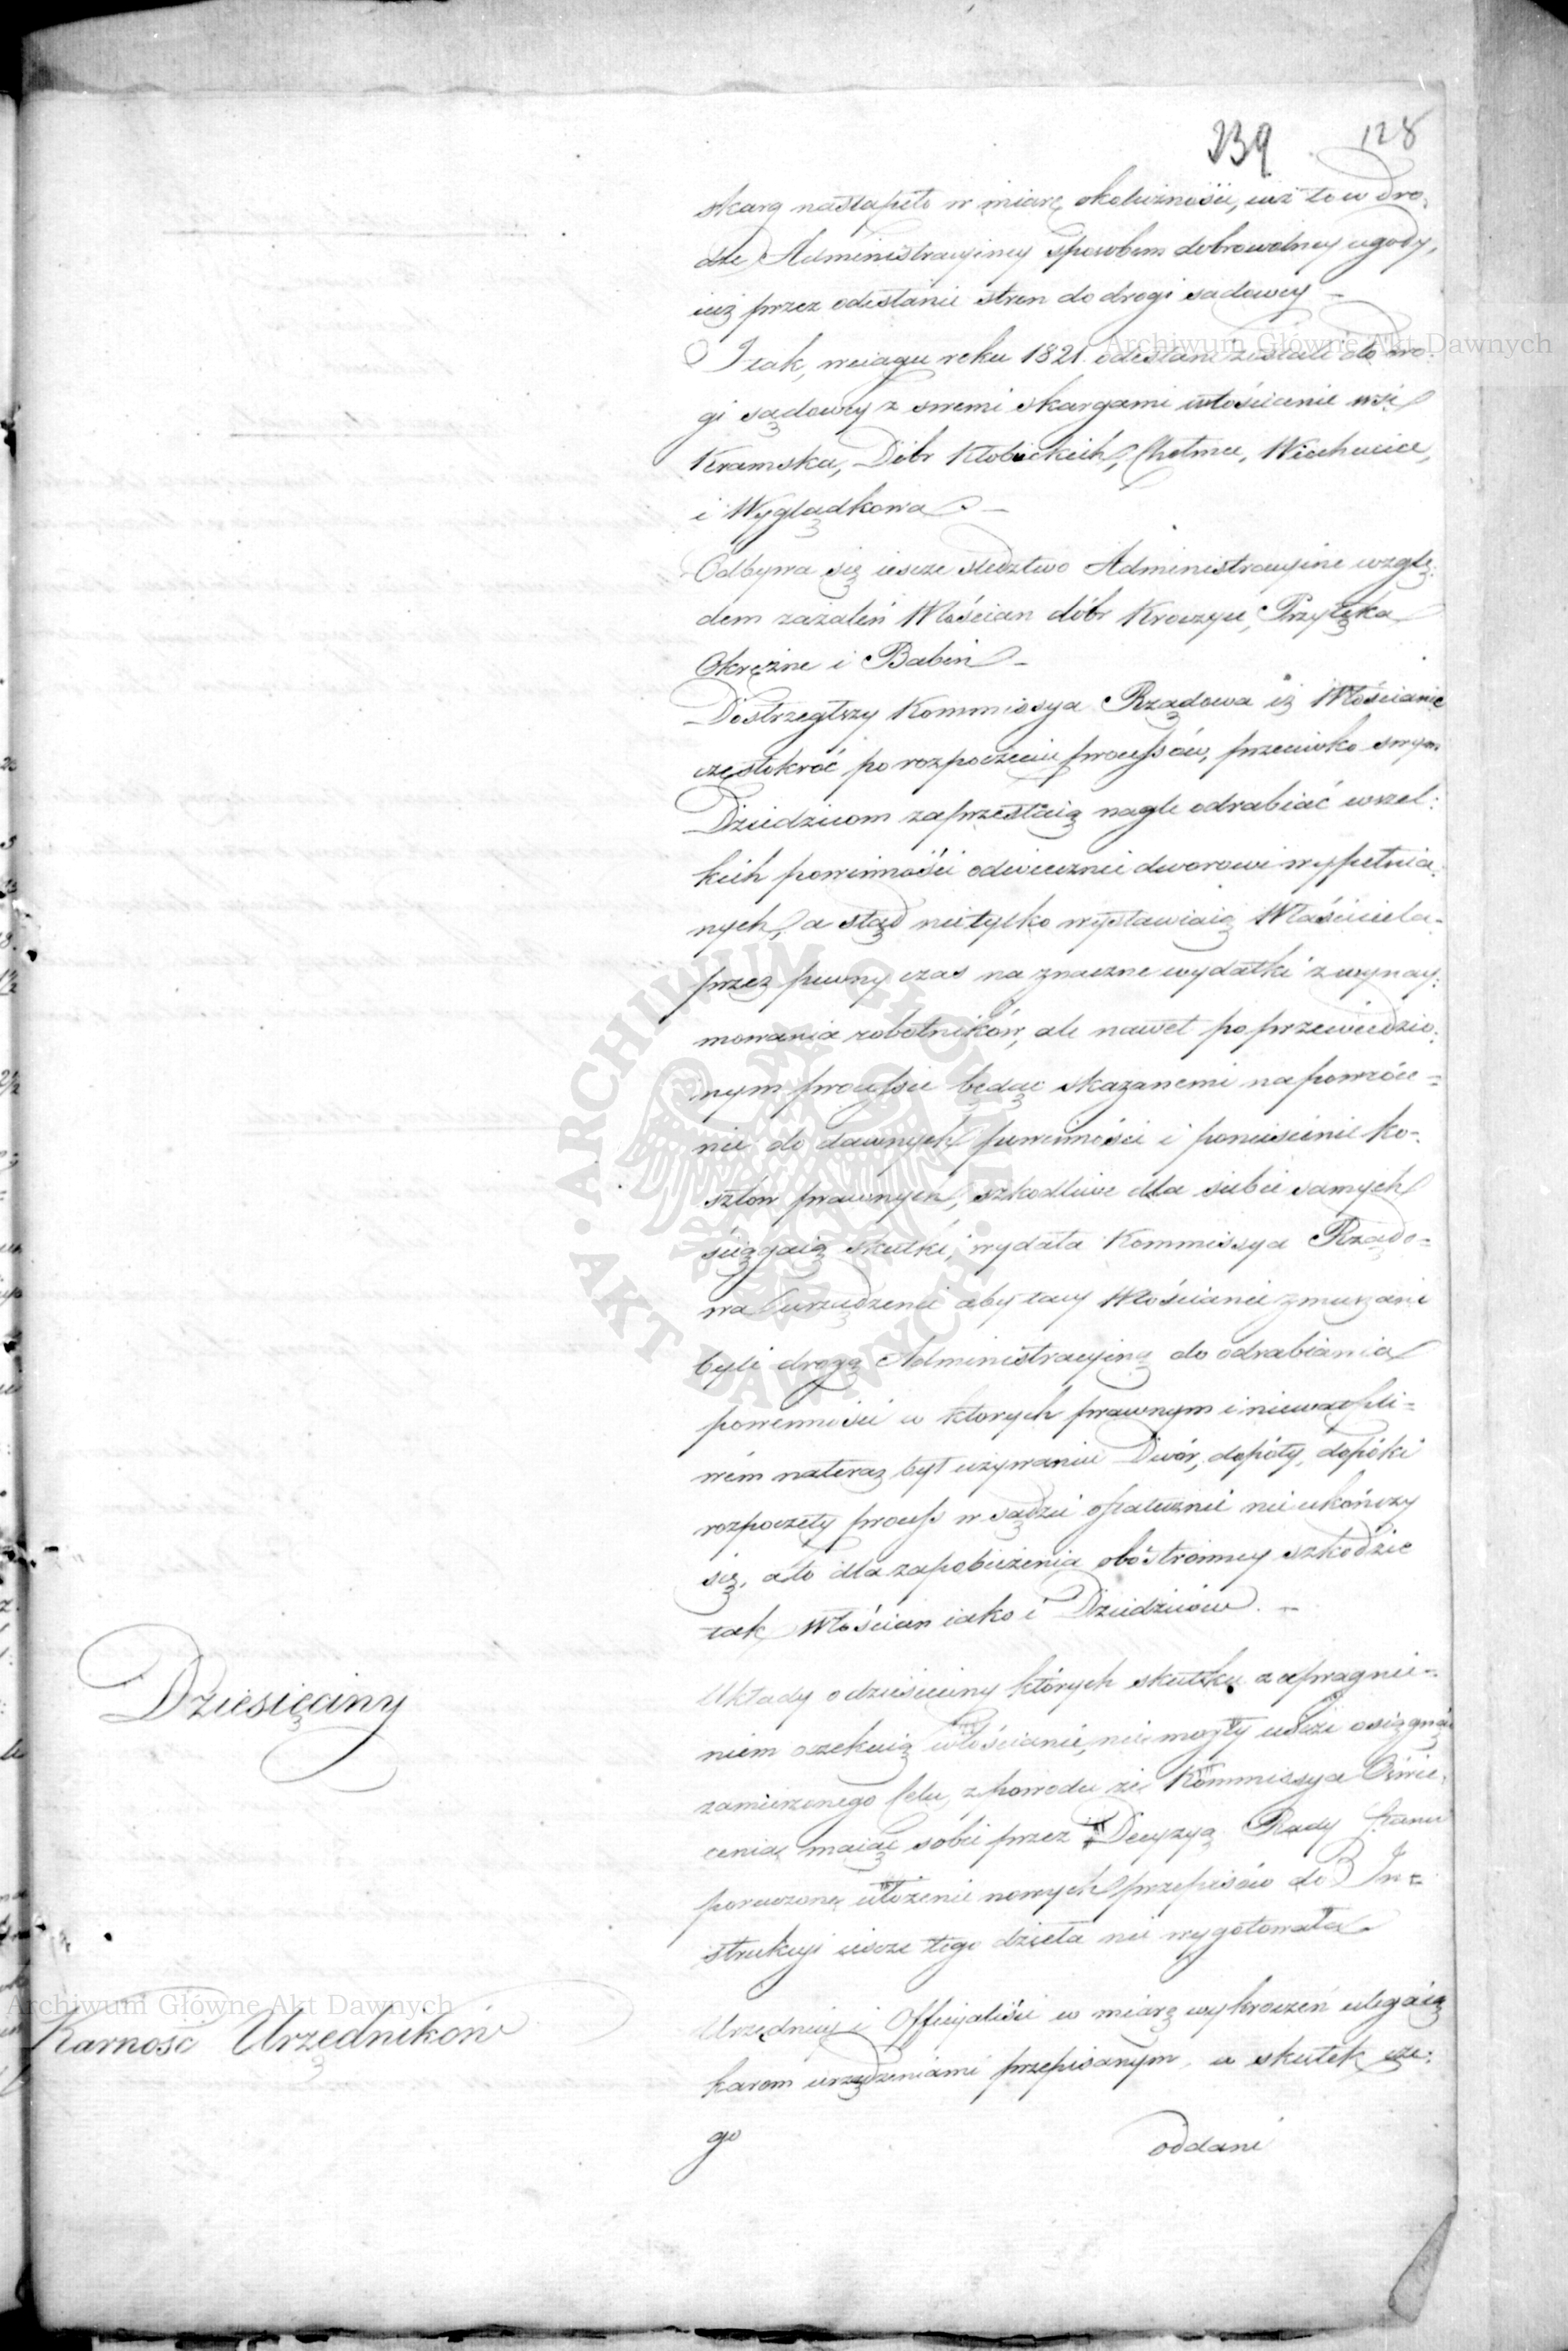 239 128
skarg nastąpiło w miarę okoliczności, iuż to w dro-
dze Administracyiney sposobem dobrowolney ugody,
iuż przez odesłanie stron do drogi sądowey –
I tak, w ciągu roku 1821 odesłani zostali do dro-
gi sądowey z swemi skargami włościanie wsi
Kramska, Dóbr Kłobuckich, Chełmce,
i Wyglądkowa –
Odbywa się iescze sledztwo Administracyine wzglę-
dem zażaleń Włościan dóbr Kroczyce, Przyłęka
Okrężne i Babin –
Dostrzegłszy Kommissya Rządowa iż Włościanie
częstokroć po rozpoczęciu processów, przeciwko swym
Dziedzicom zaprzestaią nagle odrabiać wszel:
kich powinności odwiecznie dworowi wypełnia:
nych, a stąd nietylko wystawiaią Właściciela
przez pewny czas na znaczne wydatki z wynay:
mowania robotników, ale nawet po przewiedzio:
nym processie będąc skazanemi na powróce=
nie do dawnych powinności i poniesienie ko-
sztow prawnych, szkodliwe dla siebie samych
ściągaią skutki, wydała Kommissya Rządo=
wa urządzenie aby tacy Włościanie zmuszani
byli drogą Administracyiną do odrabiania
powinności w ktorych prawnym i niewątpli=
wém nateraz był używaniu Dwór, dopóty, dopóki
rozpoczęty process w sądzie ostatecznie nie ukończy
się, a to dla zapobieżenia obostronney szkodzie
tak Włościan iako i Dziedziców. –
Dziesięciny
Układy o dziesięciny których skutku z upragnie=
niem oczekuią włościanie, nie mogły iescze osiągnąć
zamierzonego Celu, z powodu że Kommissya Oświe-
cenia maiąc sobie przez Decyzyą Rady Stanu
poruczone ułożenie nowych przepisów do In=
strukcyi iescze tego dzieła nie wygotowała
Karność Urzędników
Urzędnicy i Officyaliści w miarę wykroczeń ulegaią
karom urządzeniami przepisanym, w skutek cze:
go
oddani
Archiwum Główne Akt Dawnych
Archiwum Główne Akt Dawnych
ARCHIWUM GŁÓWNE AKT DAWNYCH